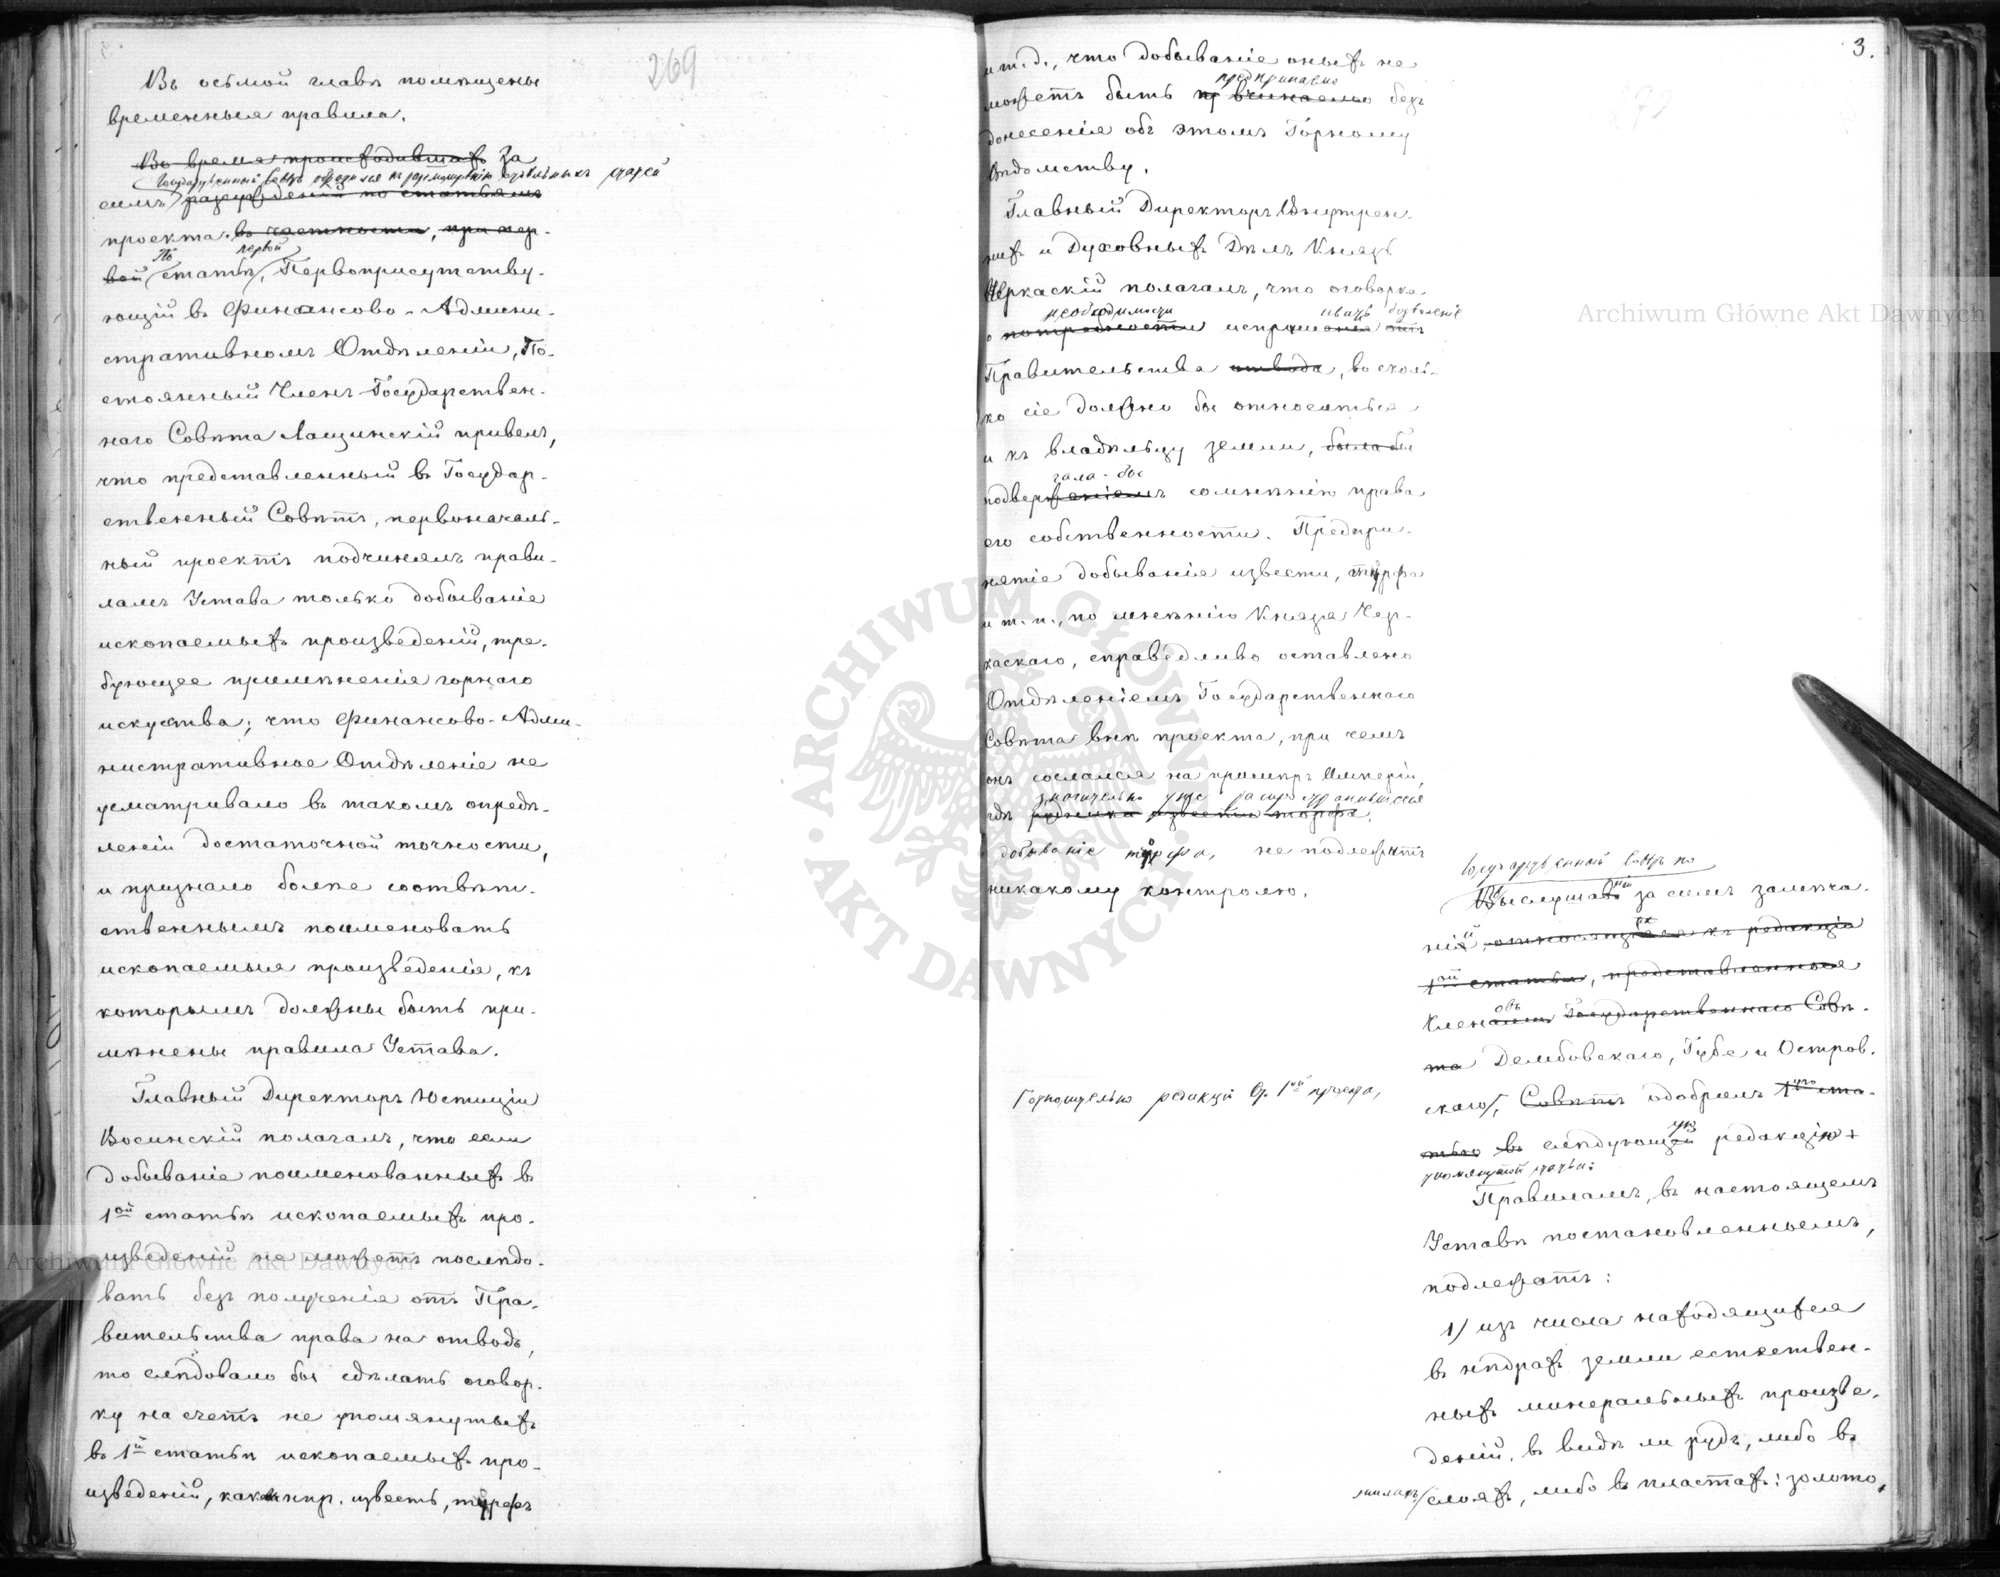 269
Въ осьмой главѣ помѣщены
временныя правила.
Во время происходившихъ За
Государственный Совѣтъ обратился къ разсмотрѣнію отдѣльныхъ статей
симъ разсужденій по статьямъ
проекта въ частности, при пер-
По первой
вой статьѣ, Первоприсутству-
ющій въ Финансово-Админи-
стративномъ Отдѣленіи, По-
стоянный Членъ Государствен-
наго Совѣта Лащинскій привелъ,
что представленный въ Государ-
ственный Совѣтъ, первоначаль-
ный проектъ подчинялъ прави-
ламъ Устава только добываніе
ископаемыхъ произведеній, тре-
бующее примѣненія горнаго
искуства; что Финансово-Адми-
нистративное Отдѣленіе не
усматривало въ такомъ опредѣ-
леніи достаточной точности,
и признало болѣе соотвѣт-
ственнымъ поименовать
ископаемыя произведенія, къ
которымъ должны быть при-
мѣнены правила Устава.
Главный Директоръ Юстиціи
Восинскій полагалъ, что если
добываніе поименованныхъ въ
1ой статьѣ ископаемыхъ про-
изведеній не можетъ послѣдо-
вать безъ полученія отъ Пра-
вительства права на отводъ,
то слѣдовало бы сдѣлать оговор-
ку на счетъ не упомянутыхъ
въ 1й статьѣ ископаемыхъ про-
изведеній, как нпр. известь, турфъ
3.
и т. д., что добываніе оныхъ не
предпринаемо
можетъ быть пр вчинаемо безъ
донесенія объ этомъ Горному
Вѣдомству.
Главный Директоръ Внутрен-
нихъ и Духовныхъ Дѣлъ Князь
Черкаскій полагалъ, что оговорка
необходимости ивать дозволеніе
о потребности испрошенія отъ
Правительства отвода, во сколь-
ко сіе должно бы относиться
и къ владѣльцу земли, была бы
гала-бы
подверженіемъ сомнѣнію права
его собственности. Предпри-
нятіе добыванія извести, турфа
и т. п., по мнѣнію Князя Чер-
каскаго, справедливо оставлено
Отдѣленіемъ Государственнаго
Совѣта внѣ проекта, при чемъ
онъ сослался на примѣръ Имперіи,
значительно уже распространившееся
гдѣ извести торфа,
добываніе турфа, не подлежитъ
никакому контролю.
Государственный Совѣтъ по
Выслушавъ за симъ замѣча-
ній, относящіяся къ редакціи
1ой статьи, представленныя
Членами Государственнаго Совѣ-
та Дембовскаго, Губе и Остров-
относительно редакціи ст. 1ой проекта,
скаго, Совѣтъ одобрилъ 1ую ста-
тью въ слѣдующей редакцію
упомянутой статьи:
Правиламъ, въ настоящемъ
Уставѣ постановленнымъ,
подлежатъ:
1) изъ числа находящихся
въ нѣдрахъ земли естествен-
ныхъ минеральныхъ произве-
деній, въ видѣ ли рудъ, либо въ
жилахъ слояхъ, либо въ пластахъ: золото,
Archiwum Główne Akt Dawnych
Archiwum Główne Akt Dawnych
ARCHIWUM GŁÓWNE AKT DAWNYCH